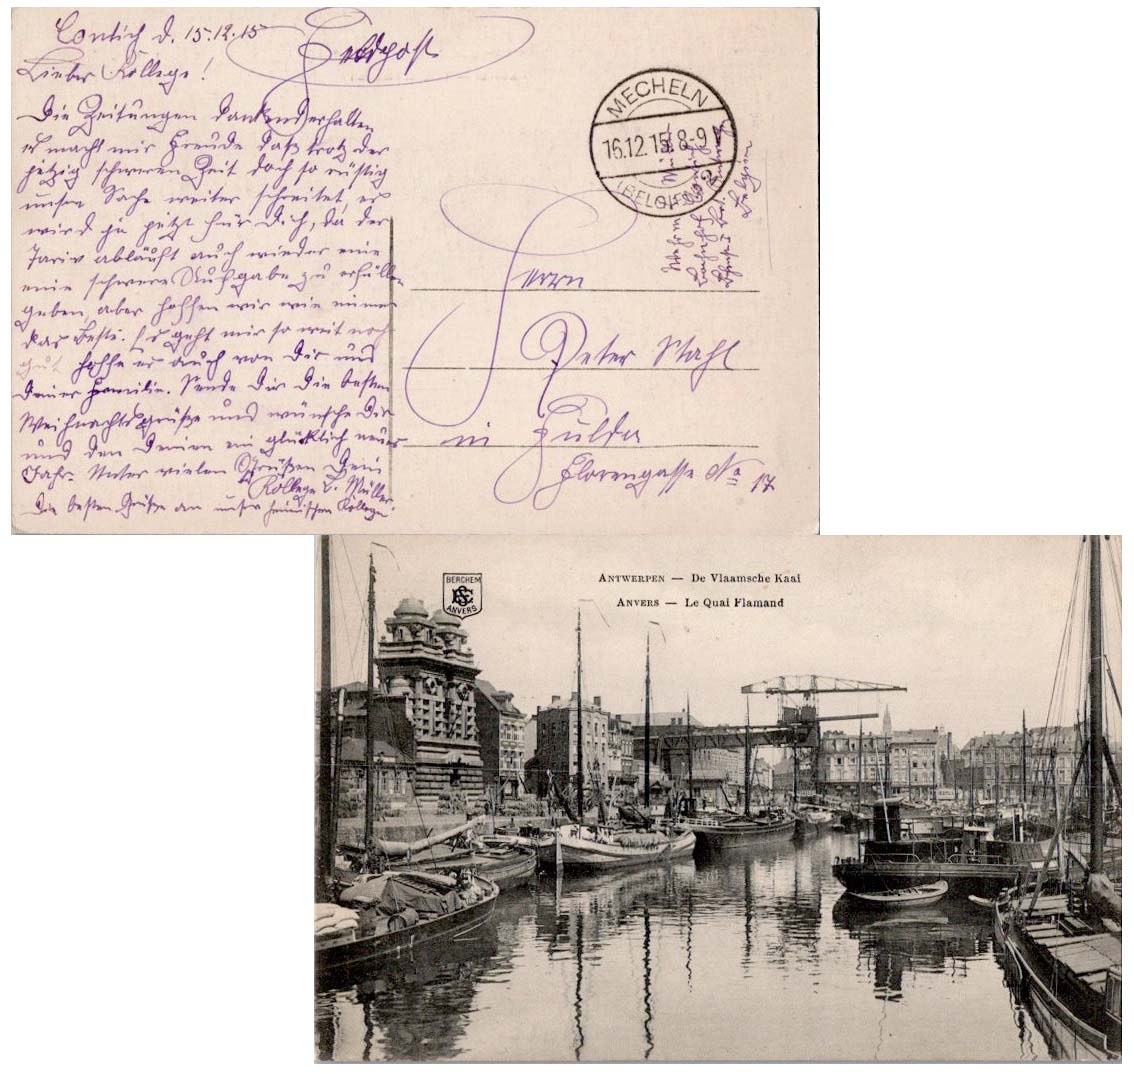 Contich d. 15.12.15
Feldpost
Lieber Kollege!
Die Zeitungen dankend erhalten
es macht mir Freude daß trotz der
jetzig schweren Zeit doch so rüstig
unsre Sache weiter schreitet, es
wird ja jetzt für Dich, da der
Tariv abläuft auch wieder eine
eine schwere Aufgabe zu erfüllen
geben, aber hoffen wir wie immer
das Beste. Es geht mir so weit noch
gut hoffe es auch von Dir und
Deiner Familie. Sende Dir die besten
Weihnachtsgrüße und wünsche Dir
und den Deinen ein glücklich neues
Jahr. Unter vielen Grüßen Dein
Kollege L. Müller
Die besten Grüße an unsre heimischen Kollegen
MECHELN
16.12.15 8-9 V
(BELGIEN) 2
Wehrm Müller
Belgien
Herrn
Peter Stahl
in Fulda
Florengasse No 17
BERCHEM
ANVERS
ANTWERPEN — De Vlaamsche Kaai
ANVERS — Le Quai Flamand